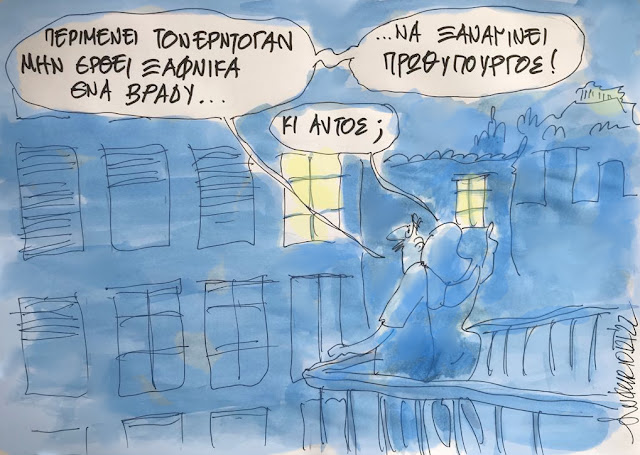 ΠΕΡΙΜΕΝΕΙ ΤΟΝ ΕΡΝΤΟΓΑΝ
ΜΗΝ ΕΡΘΕΙ ΞΑΦΝΙΚΑ
ΕΝΑ ΒΡΑΔΥ...
...ΝΑ ΞΑΝΑΓΙΝΕΙ
ΠΡΩΘΥΠΟΥΡΓΟΣ!
ΚΙ ΑΥΤΟΣ;